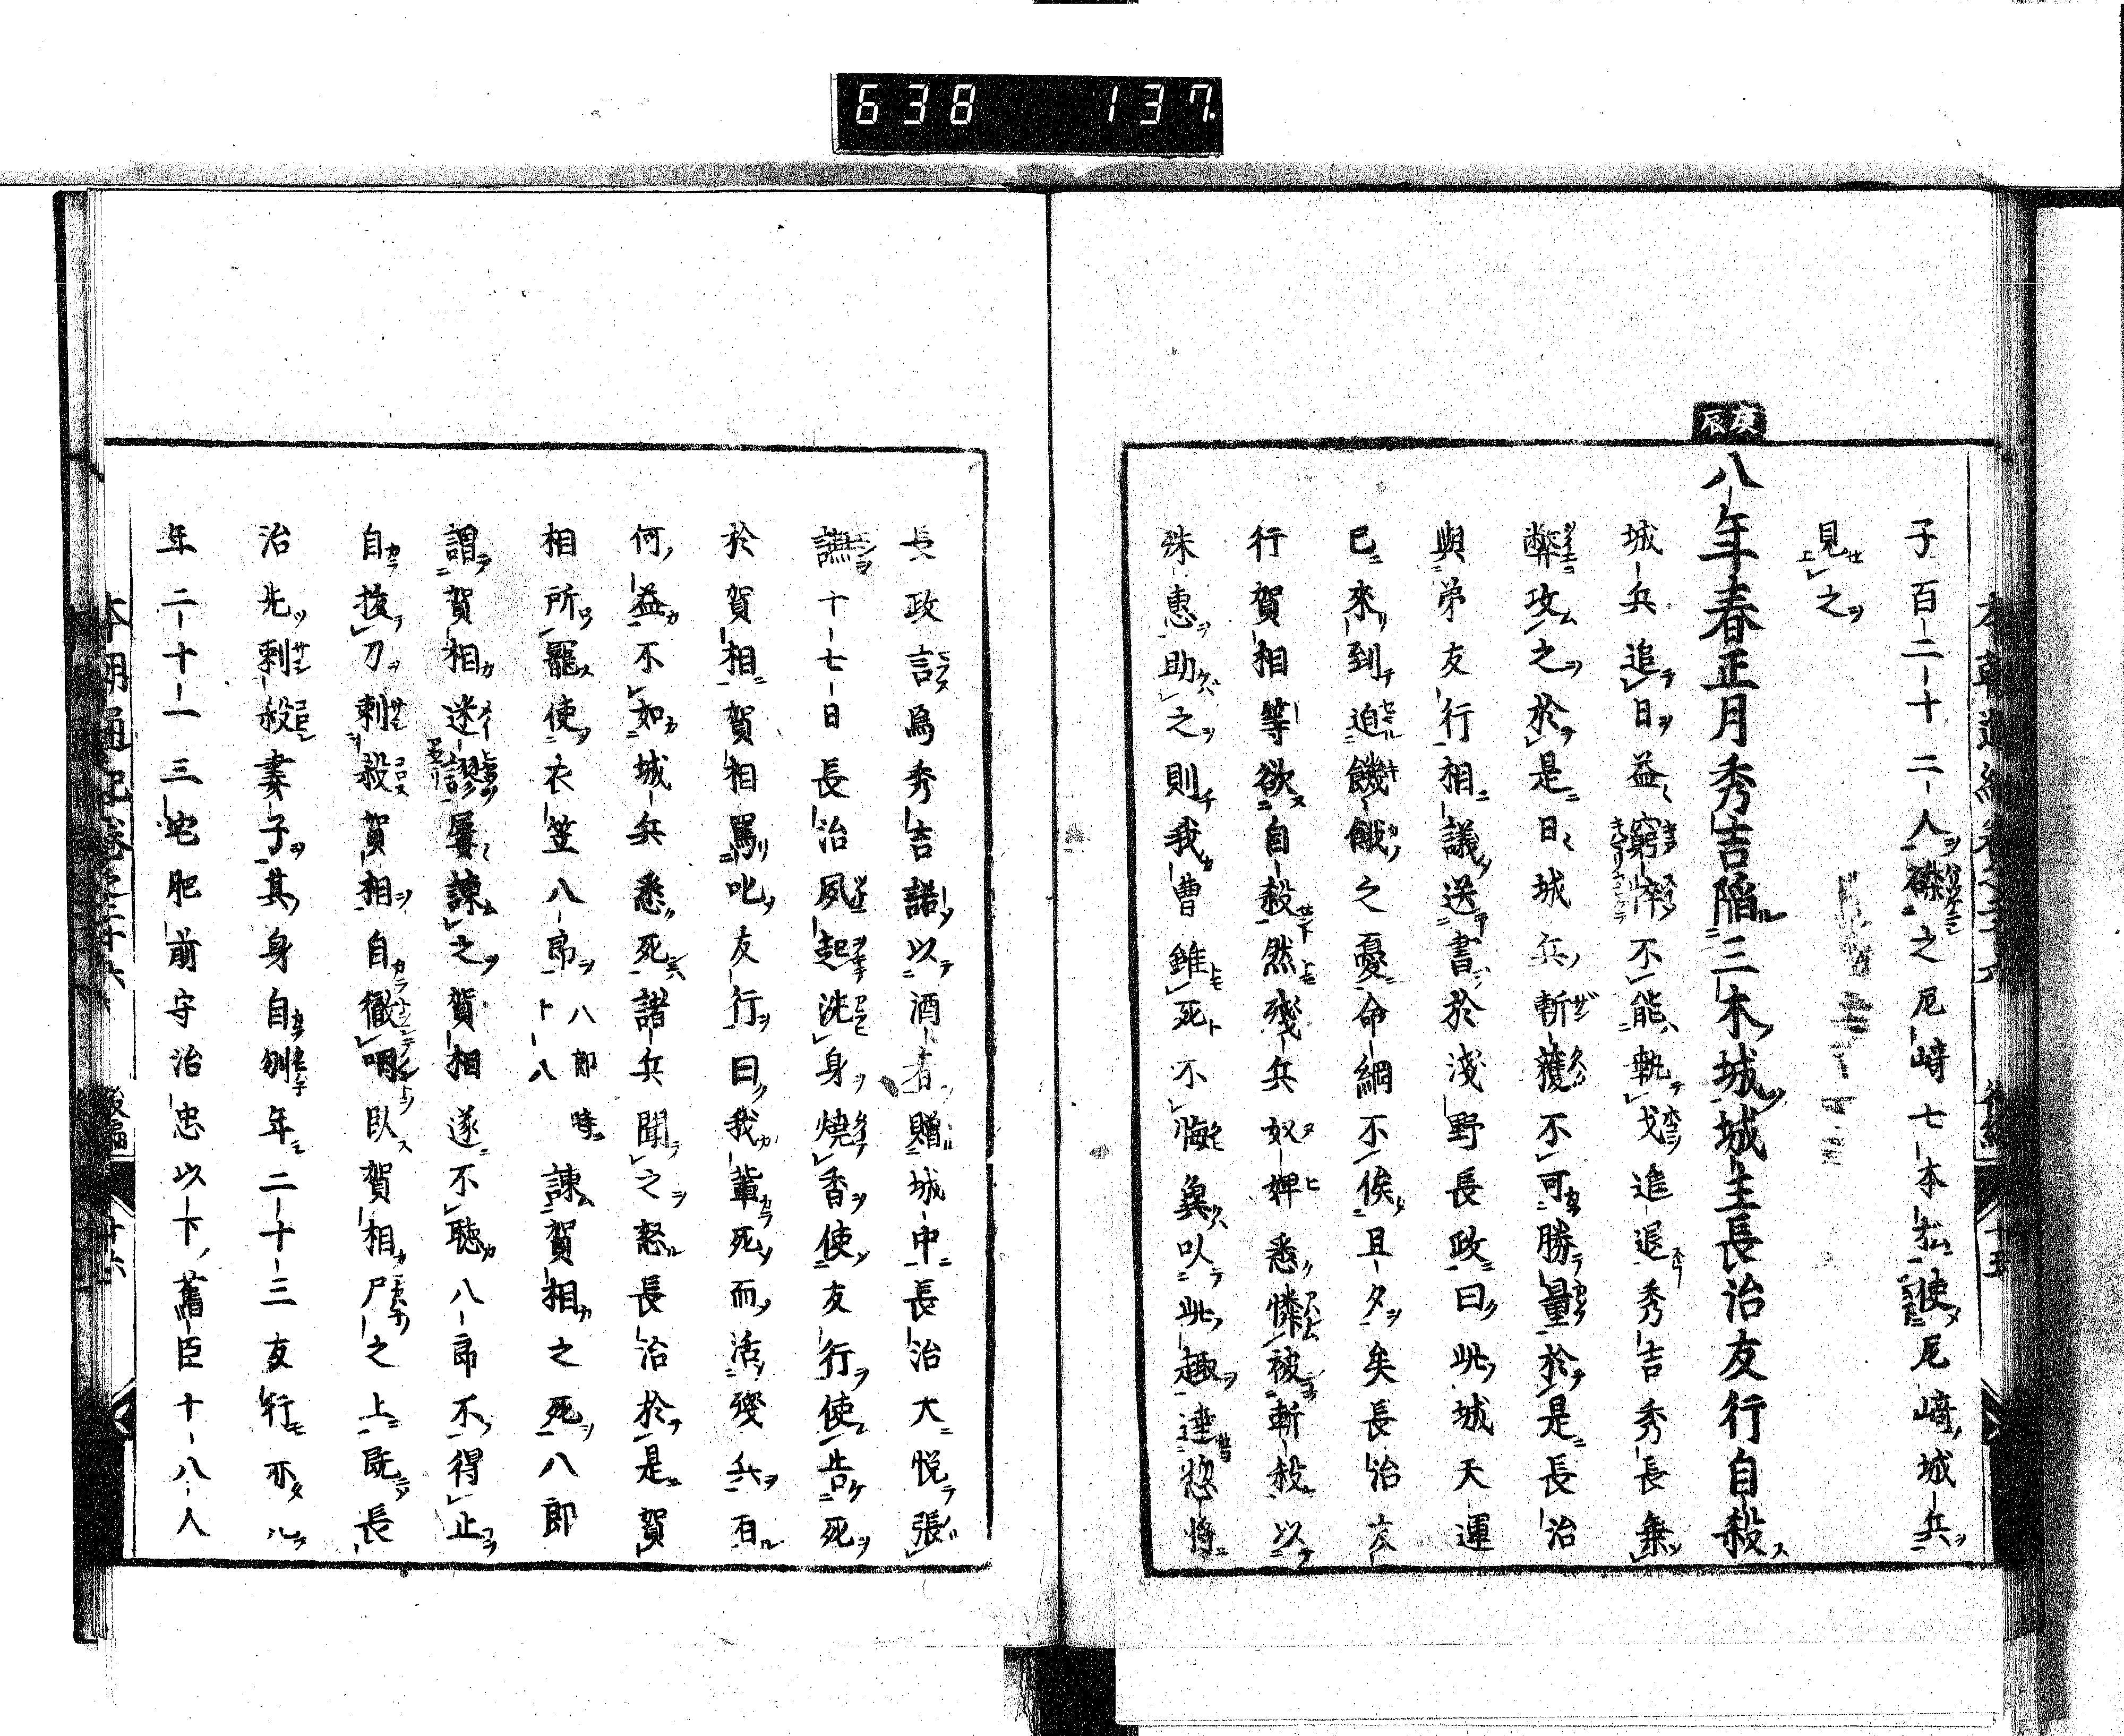 638 137
子百二十二人磔之尼﨑七本松使尼﨑城兵
見之
庚辰
八年春正月秀吉陷三木城城主長治友行自殺
城兵追日益窮悴不能執戈進退秀吉秀長無
弊攻之於是日城兵斬獲不可勝量於是長治
與弟友行相議送書於淺野長政曰此城天運
已來到迫饑餓之憂命網不俟且夕矣長治友
行賀相等欲自殺然殘兵奴婢悉憐被斬殺以
殊惠助之則我曹雖死不悔奠以此趣達惣將
長政言爲秀吉諾以酒肴贈城中長治大悅張
讌十七日長治夙起洗身燒香使友行使告死
於賀相賀相罵叱友行曰我輩死而活殘兵有
何益不如城兵悉死諸兵聞之怒長治於是賀
相所寵使衣笠八郎八郎時十八諫賀相之死八郎
謂賀相迷謬屢諫之賀相遂不聽八郎不得止
自拔刀刺殺賀相自徹咽臥賀相尸之上既長
治先刺殺妻子其身自刎年二十三友行亦八
年二十一三宅肥前守治忠以下舊臣十八人
本朝通紀卷之二十六 後編 十六